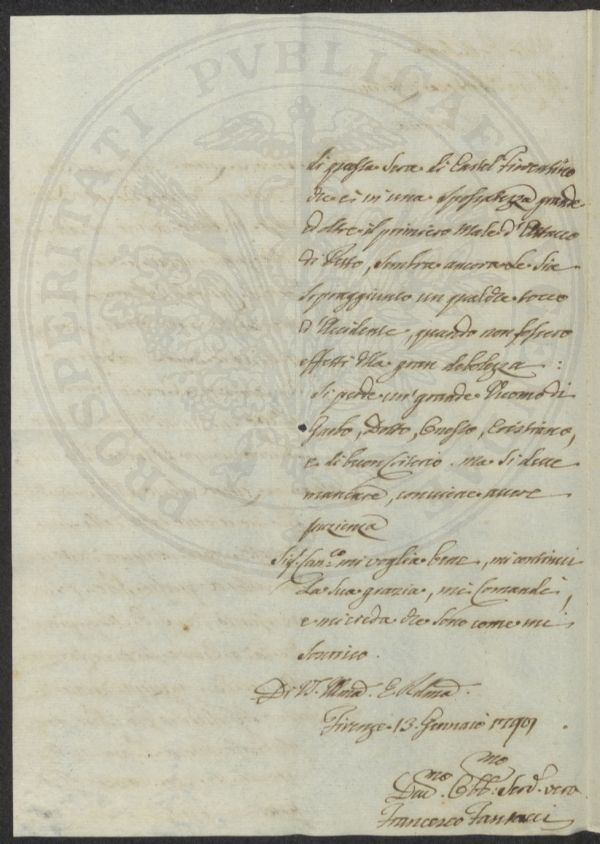 di questa sera di Castel Fiorentino
che è in una spossatezza grande
ed oltre il primiero Male d'Attacco
di Petto, sembra ancora che sia
sopraggiunto un qualche tocco
d'Accidente, quando non fossero
effetti della gran debolezza:
Si perde un grande Uomo di
Garbo, Dotto, Onesto, Cristiano,
e di buon Criterio. ma si deve
mancare, conviene avere
pazienza
Sig.r Can.co mi voglia bene, mi continui
La sua grazia, mi Comandi,
e mi creda che sono come mi
soscrivo.
Di V. Illma. e Rdma.
Firenze 13. Gennaio
Obb. Serv. vero
Francesco
PROSPERITATI PVBLICAE